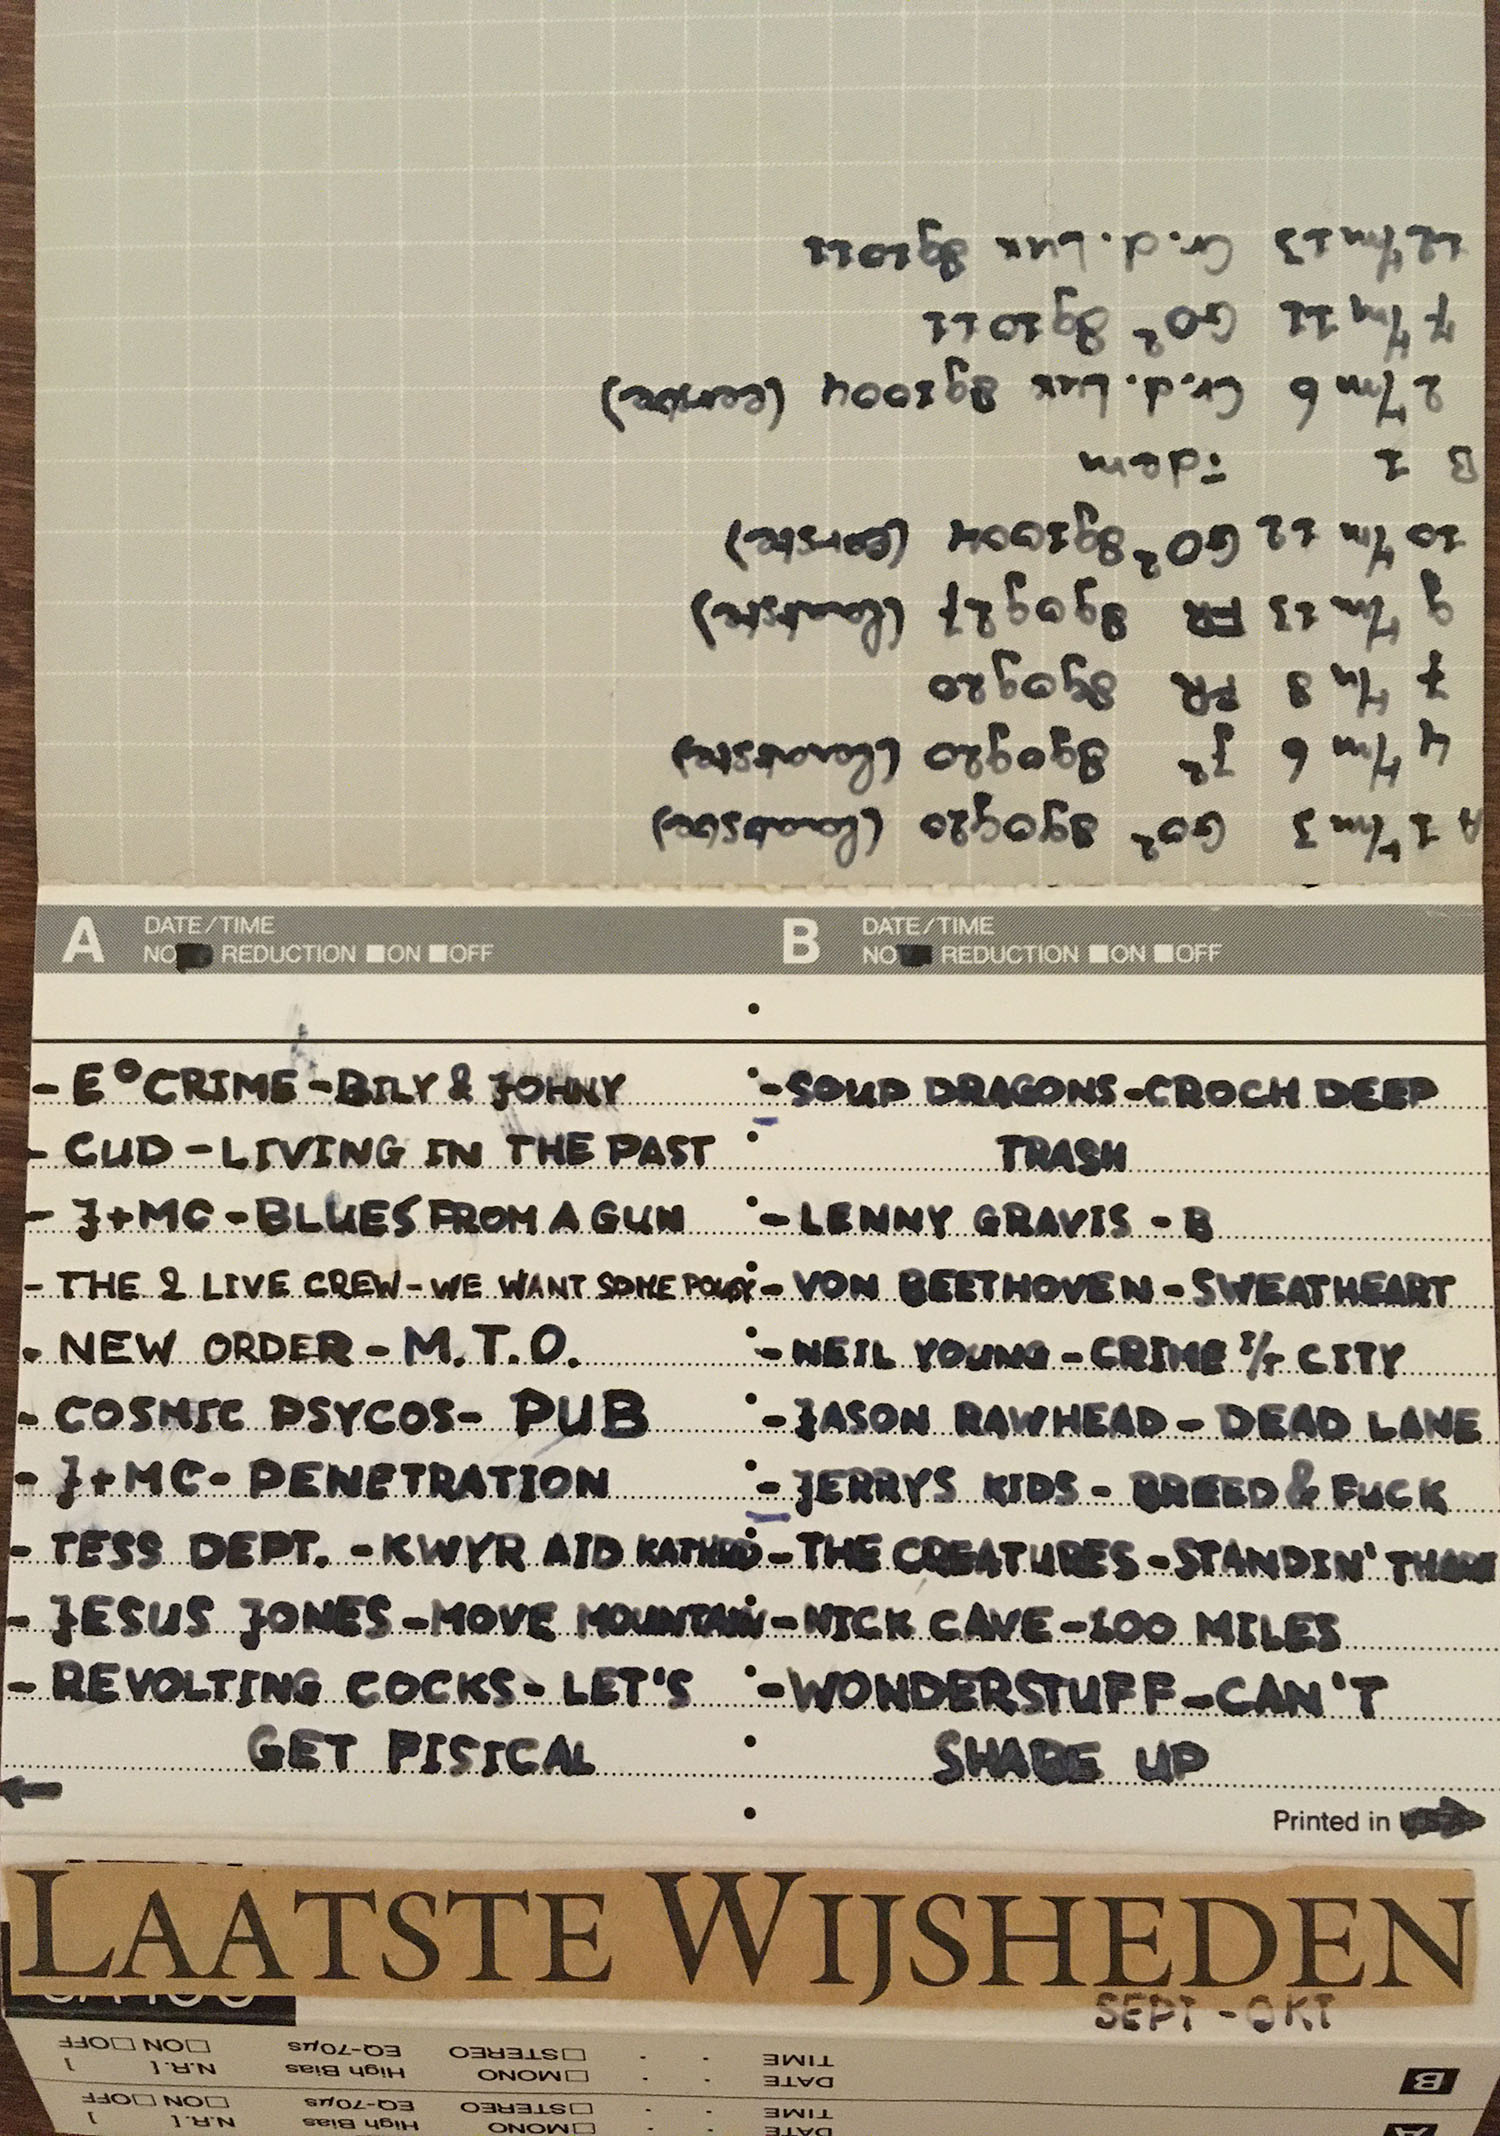 A 1 t/m 3 GO² 890920 (laatste)
4 t/m 6 J² 890920 (laatste)
7 t/m 8 FR 890920
9 t/m 13 FR 890927 (laatste)
10 t/m 12 GO² 891004 (eerste)
B 1 idem
2 t/m 6 Cr.d.Lux 891004 (eerste)
7 t/m 11 GO² 891011
12 t/m 13 Cr.d.Lux 891011
A DATE/TIME
NO REDUCTION ON OFF
B DATE/TIME
NO REDUCTION ON OFF
- E° CRIME - BILY & JOHNY
- CUD - LIVING IN THE PAST
- J+MC - BLUES FROM A GUN
- THE 2 LIVE CREW - WE WANT SOME
- NEW ORDER - M.T.O.
- COSMIC PSYCOS - PUB
- J+MC - PENETRATION
- TESS DEPT. - KWYR AID
- JESUS JONES - MOVE MOUNTAIN
- REVOLTING COCKS - LET'S
GET PISICAL
- SOUP DRAGONS - CROCH DEEP
TRASH
- LENNY GRAVIS - B
- VON BEETHOVEN - SWEATHEART
- NEIL YOUNG - CRIME I/T CITY
- JASON RAWHEAD - DEAD LANE
- JERRYS KIDS - BREED & FUCK
- THE CREATURES - STANDIN'
- NICK CAVE - 100 MILES
- WONDERSTUFF - CAN'T
SHABE UP
Printed in
LAATSTE WIJSHEDEN
SEPT - OKT
A DATE
TIME
MONO
STEREO
High Bias
EQ-70µs
N.R. [ ]
ON OFF
B DATE
TIME
MONO
STEREO
High Bias
EQ-70µs
N.R. [ ]
ON OFF